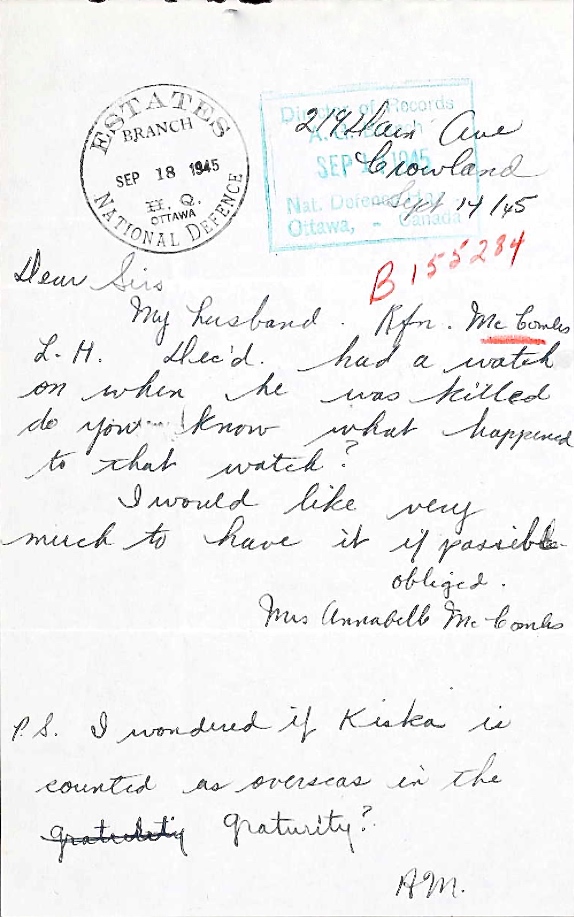 ESTATES
BRANCH
SEP 18 1945
H. Q.
OTTAWA
NATIONAL DEFENCE
Director of Records
SEP 1945
Nat. Defence
Ottawa, - Canada
219 Main Ave
Crowland
Sept 14/45
B155284
Dear Sirs
My husband. Rfn. McCombs
L. H. Dec'd. had a watch
on when he was killed
do you know what happened
to that watch?
I would like very
much to have it if possible
obliged.
Mrs Annabelle McCombs
P.S. I wondered if Kiska is
counted as overseas in the
graturity?
AM.